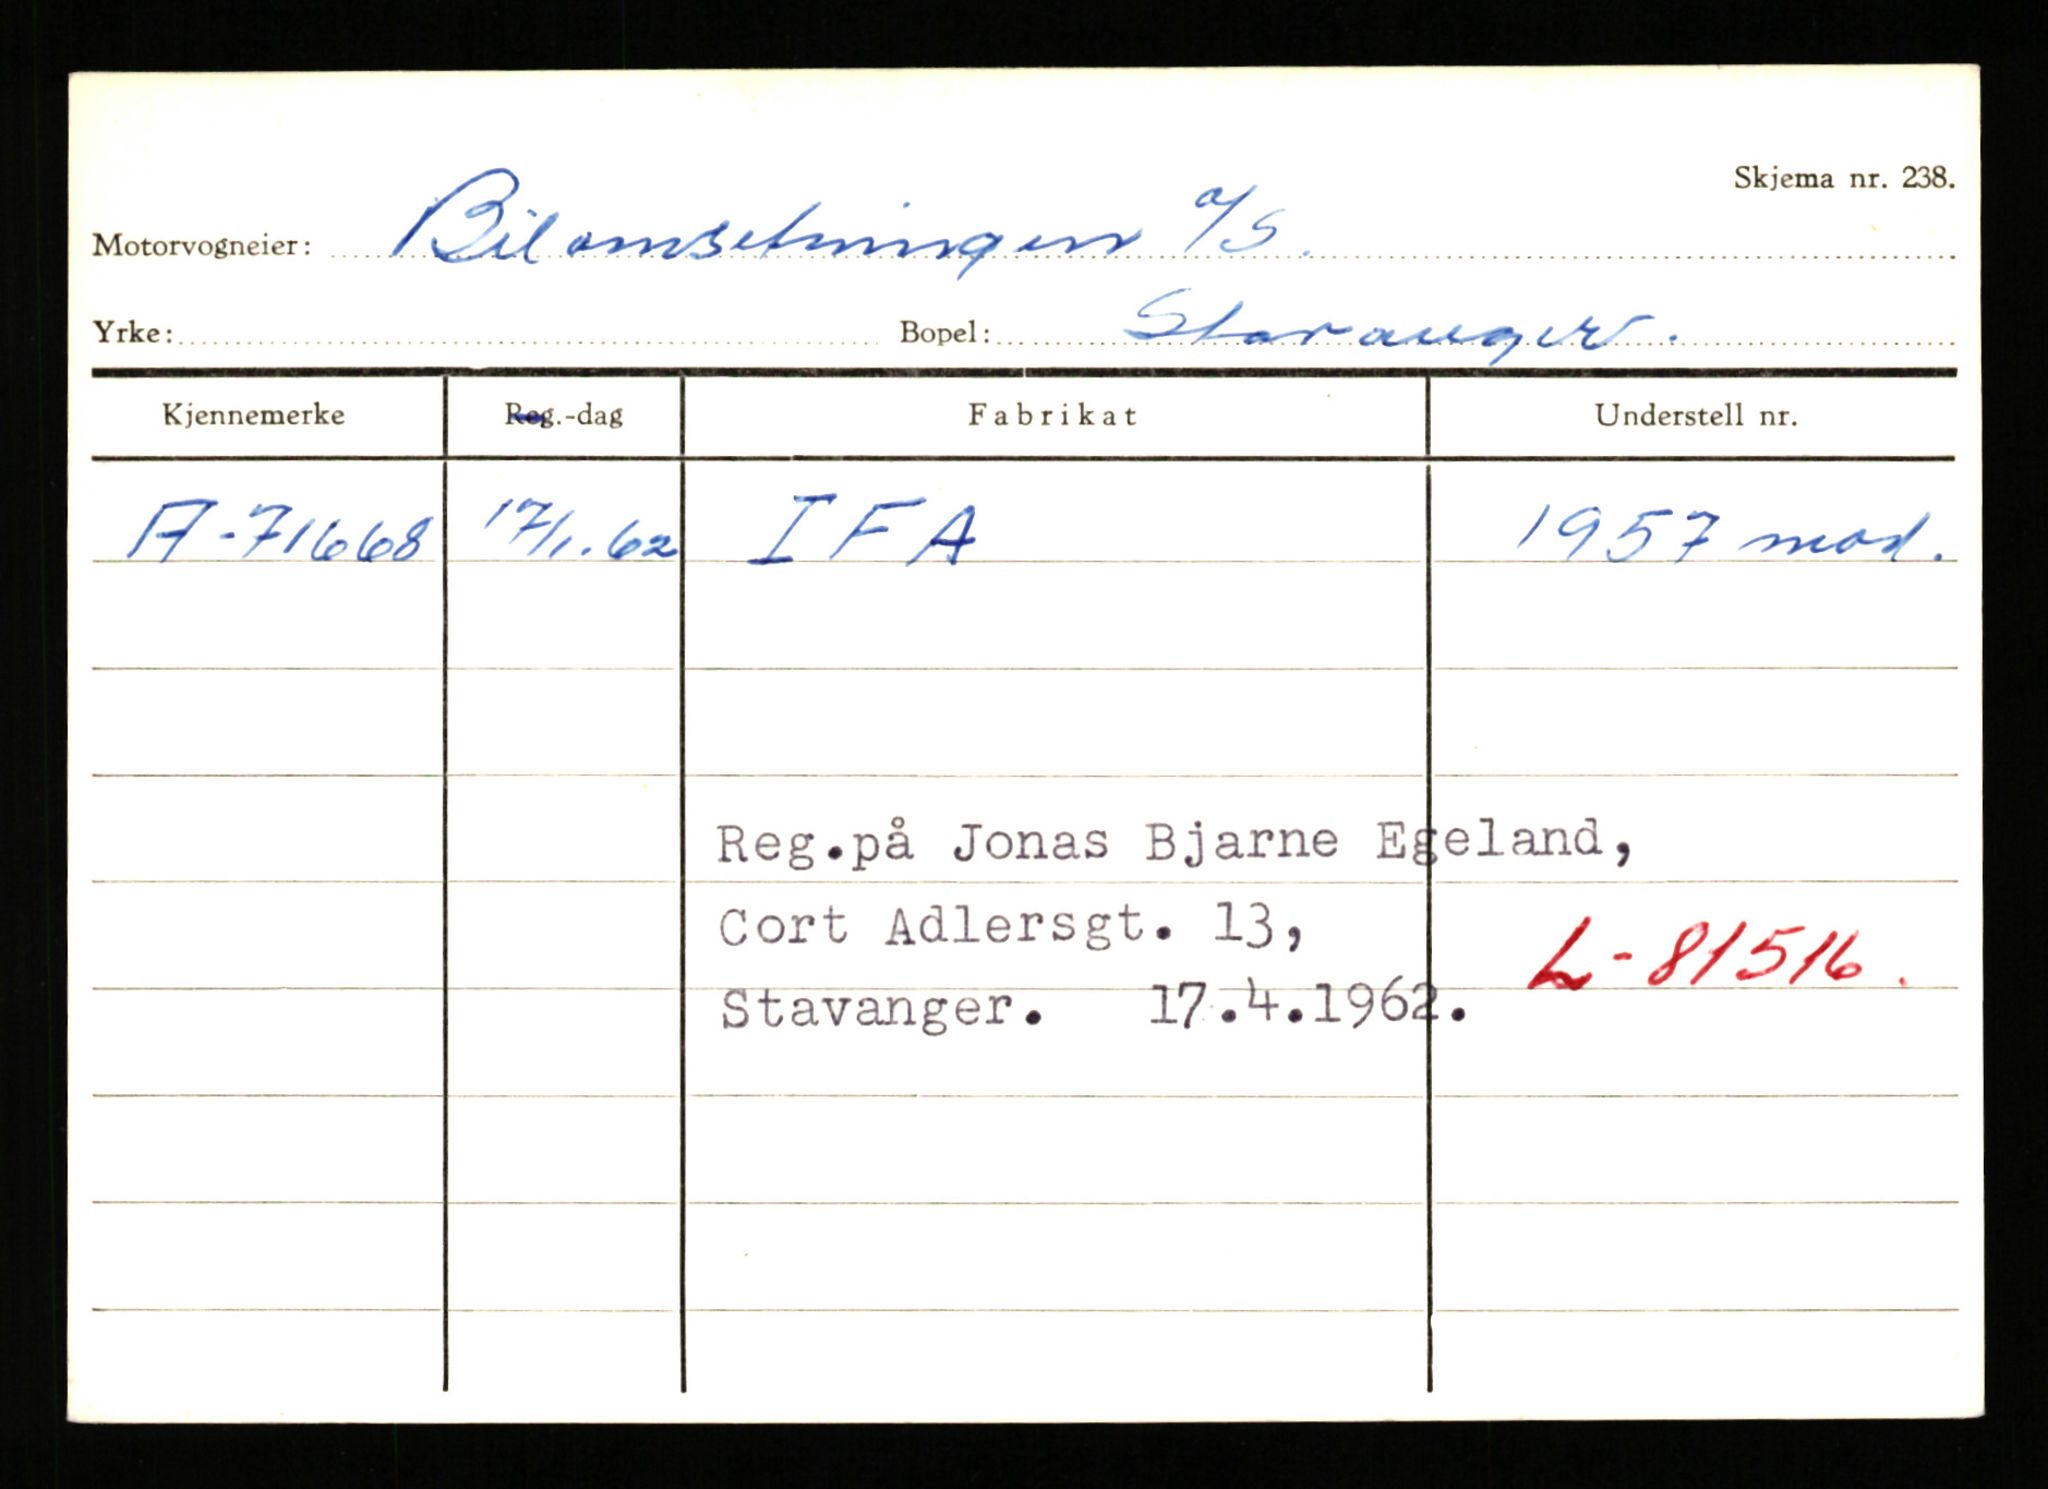 Skjema nr. 238.
Motorvogneier: Bilomsetningen A/S.
Yrke: Bopel: Stavanger.
Kjennemerke Reg.-dag Fabrikat Understell nr.
A-71668 17/1.62 IFA 1957 mod.
Reg.på Jonas Bjarne Egeland,
Cort Adlersgt. 13,
L-81516.
Stavanger. 17.4.1962.